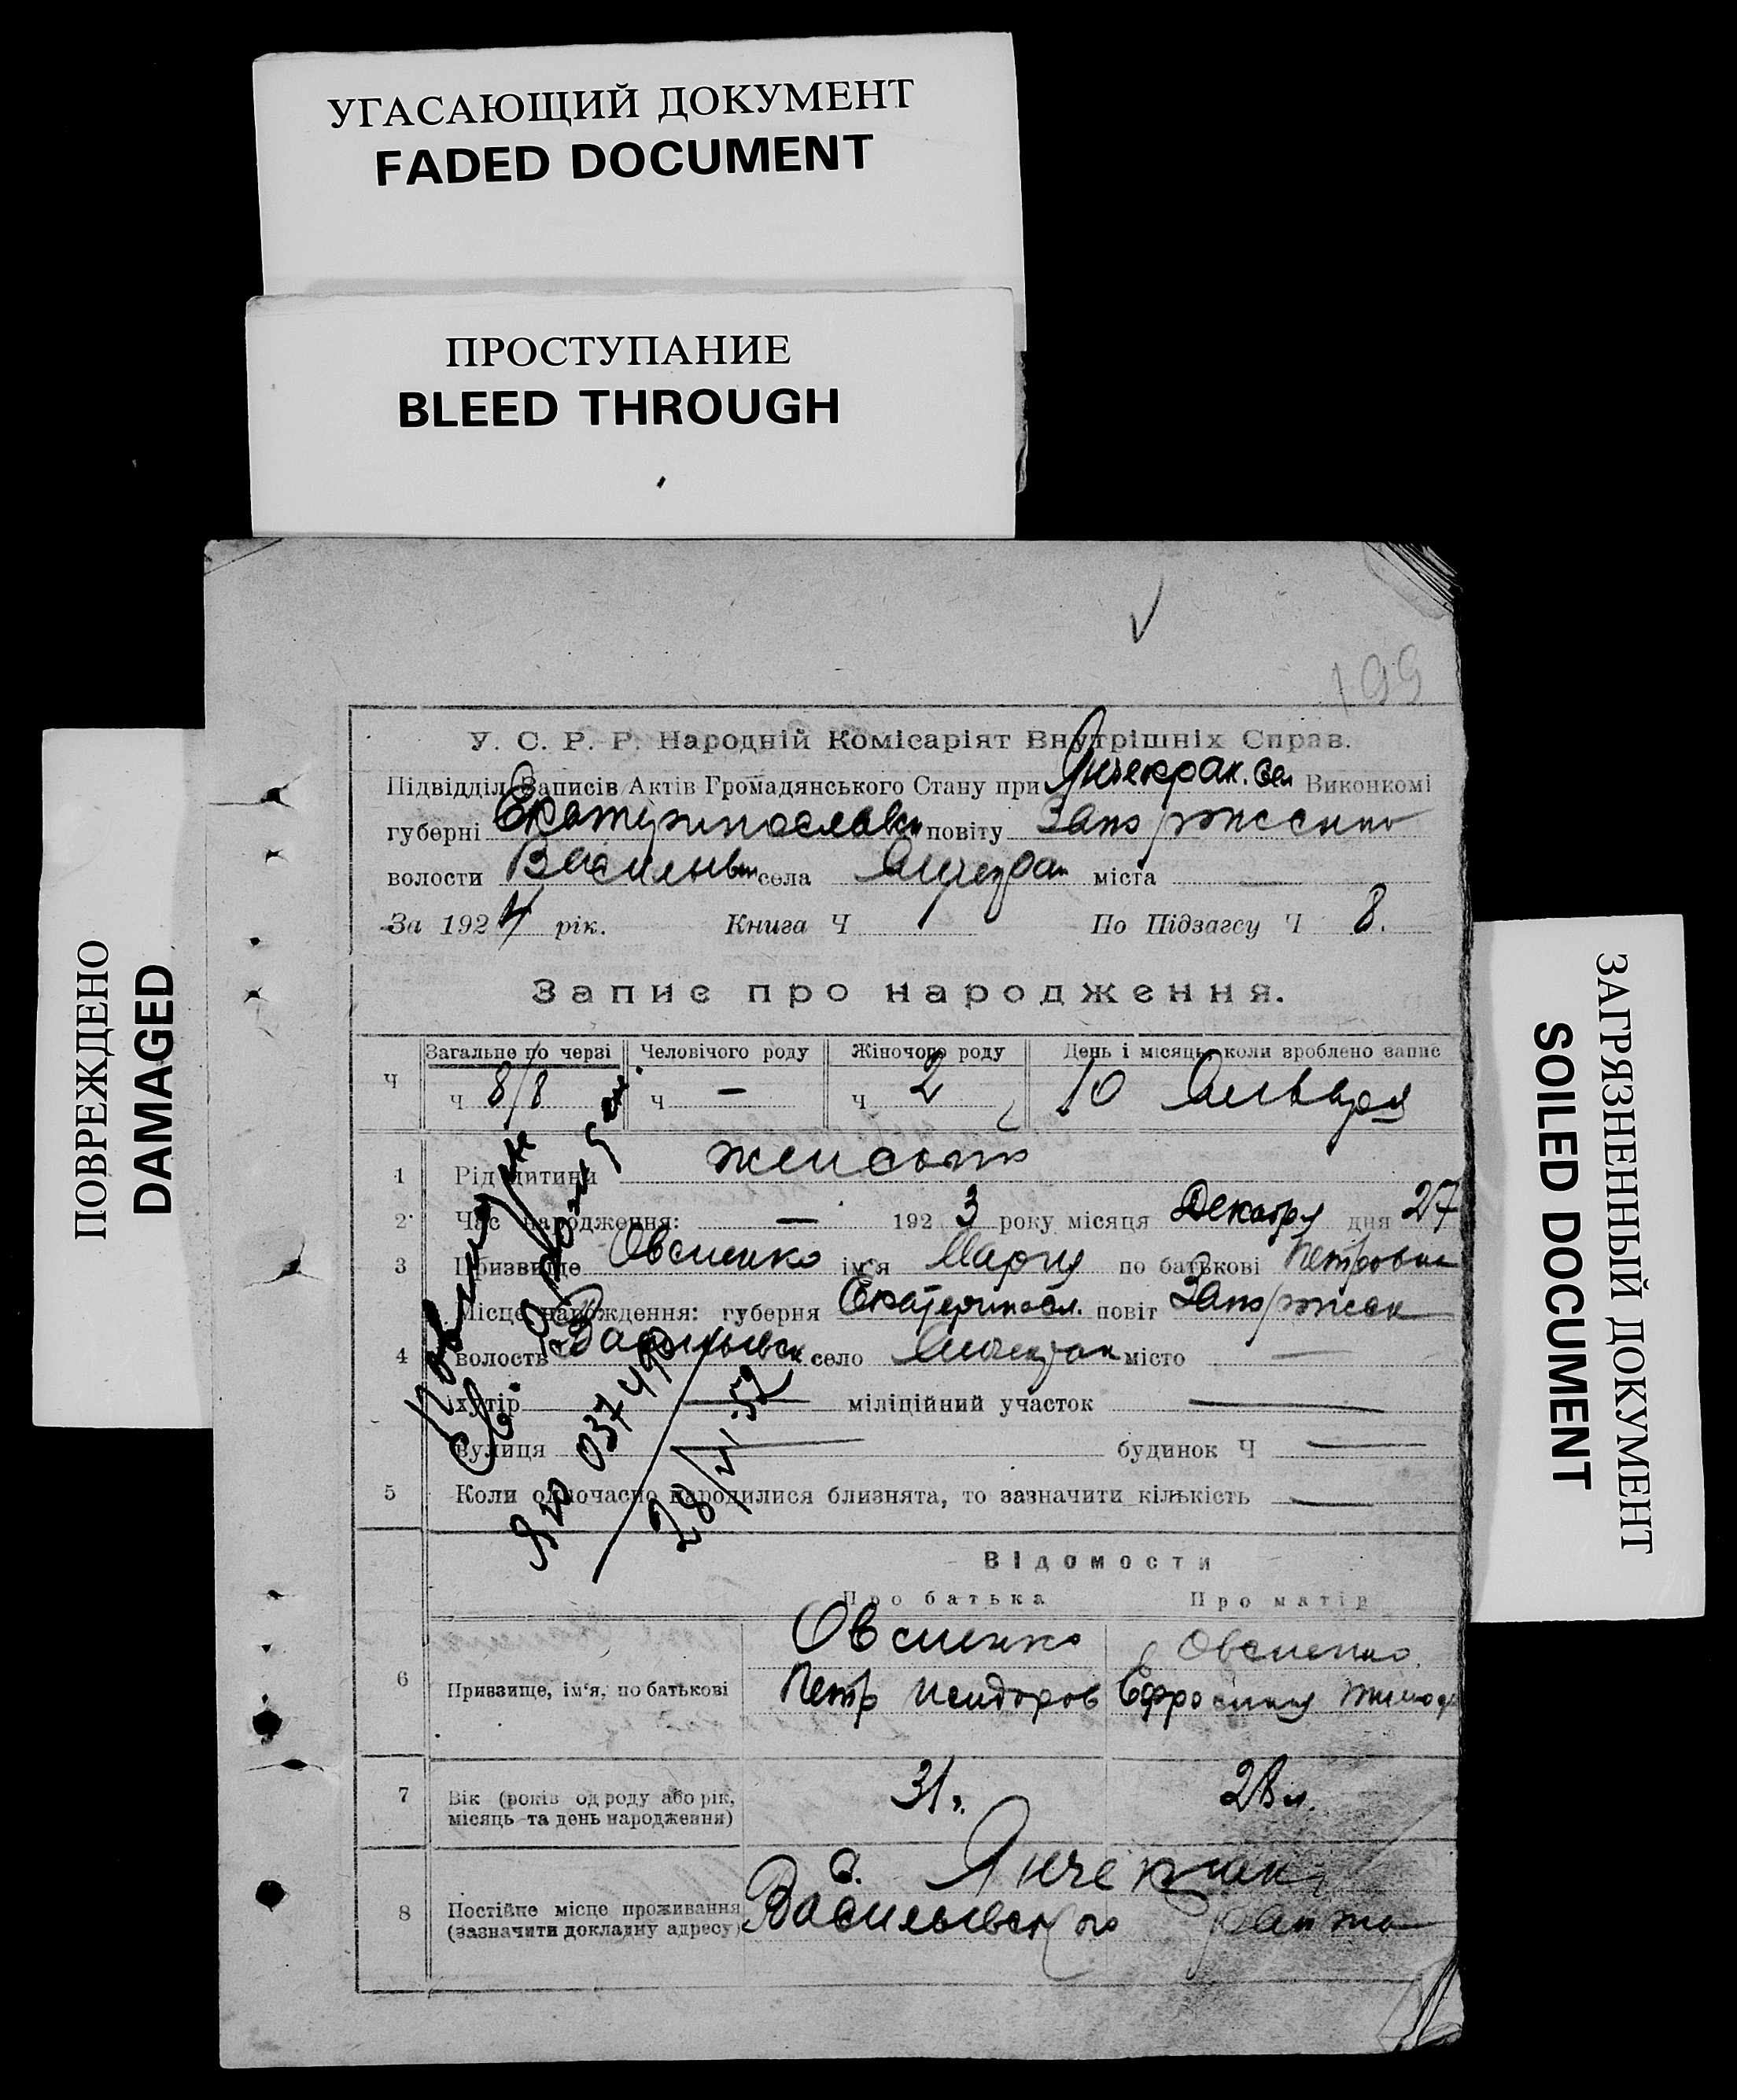 УГАСАЮЩИЙ ДОКУМЕНТ
FADED DOCUMENT
ПРОСТУПАНИЕ
BLEED THROUGH
ПОВРЕЖДЕНО
DAMAGED
ЗАГРЯЗНЕННЫЙ ДОКУМЕНТ
SOILED DOCUMENT
199
У. С. Р. Р. Народній Комісаріят Внутрішніх Справ.
Підвідділ Записів Актів Громадянського Стану при Янчекрак. Сел Виконкомі
губерні Екатеринославск повіту Запорожского
волости Васильев села Янчекрак міста —
За 1924 рік. Книга Ч По Підзагсу Ч 8.
Запис про народження.
Загальне по черзі Человічого роду Жіночого роду День і місяць, коли зроблено запис
Ч ч 8/8 ч — ч 2 10 Января
1 Рід дитини женского
2 Час народження: — 1923 року місяця Декабря дня 27
3 Призвище Овсиенко ім'я Мария по батькові Петровна
4 Місце нарождення: губерня Екатериносл. повіт Запорожск
волость Васильевск село Янчекрак місто —
хутір — міліційний участок —
вулиця — будинок Ч —
5 Коли одночасно народилися близнята, то зазначити кількість —
28/VI-52
Відомости
Про батька Про матір
Овсиенко Овсиенко
6 Призвище, ім'я, по батькові Петр Исидоров Ефросиния
7 Вік (років од роду або рік, місяць та день народження) 31 28 л.
8 Постійне місце проживання (зазначити докладну адресу) с. Янчекрак
Васильевского района